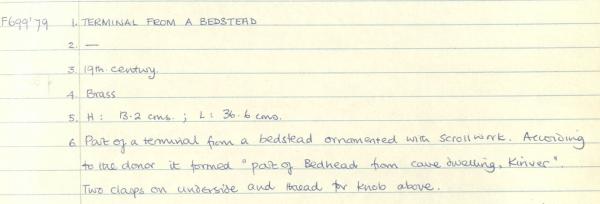 F699'79 1. TERMINAL FROM A BEDSTEAD
2. —
3. 19th century.
4. Brass
5. H: 13.2 cms.; L: 36.6 cms.
6. Part of a terminal from a bedstead ornamented with scrollwork. According
to the donor it formed "part of Bedhead from cave dwelling, Kinver".
Two clasps on underside and thread for knob above.